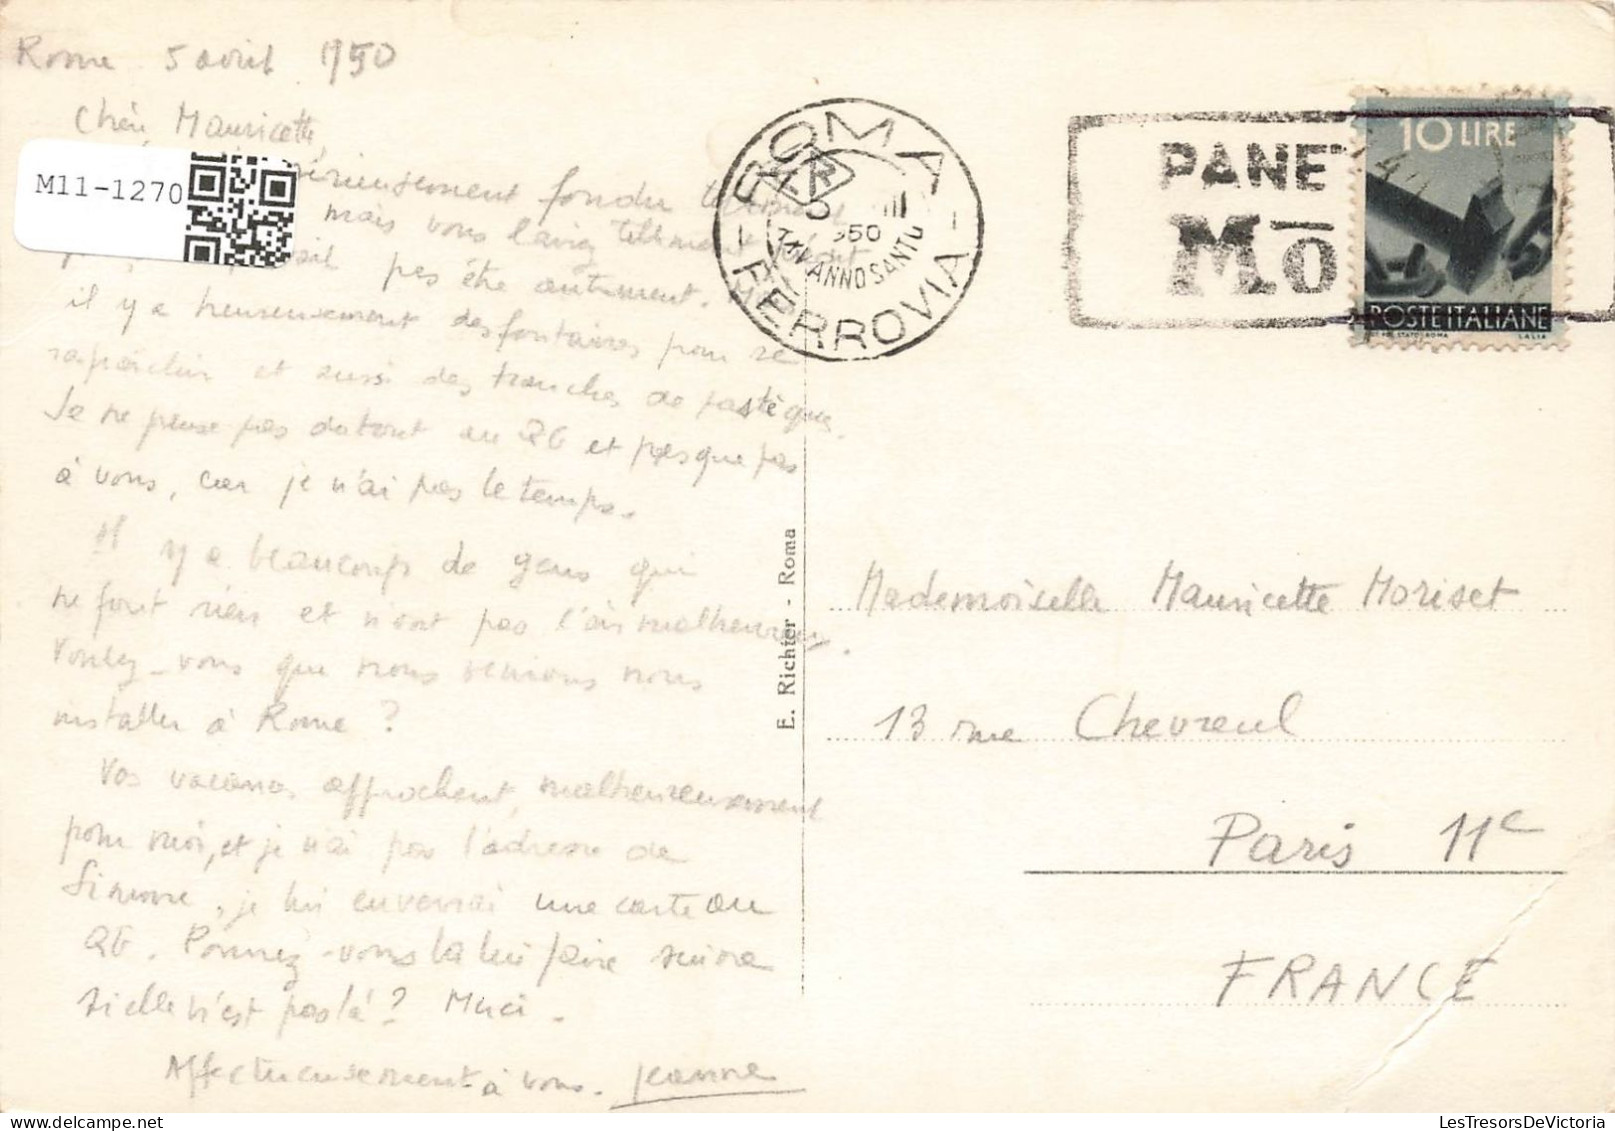 Rome 5 avril 1950
Chère Mauricette,
M11-1270
fondu
mais vous l'aviez tellement
pas être autrement.
il y a heureusement des fontaines pour se
rafraîchir et aussi des tranches de pastèque.
Je ne pense pas du tout au QG et presque pas
à vous, car je n'ai pas le temps.
Il y a beaucoup de gens qui
ne font rien et n'ont pas l'air malheureux.
Voulez-vous que nous venions nous
installer à Rome ?
Vos vacances approchent, malheureusement
pour moi, et je n'ai pas l'adresse de
Simone, je lui enverrai une carte au
QG. Pourrez-vous la lui faire suivre
si elle n'est pas là ? Merci.
Affectueusement à vous. Jeanne
ROMA
FERROVIA
ANNO SANTO
PANE
Mo
10 LIRE
POSTE ITALIANE
E. Richter - Roma
Mademoiselle Mauricette Moriset
13 rue Chevreul
Paris 11e
FRANCE
LesTresorsDeVictoria
delcampe.net